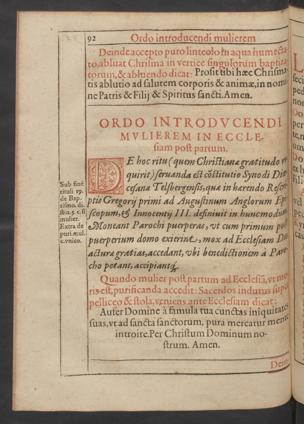 92 Ordo introducendi mulierem
Deinde accepto puro linteolo in aqua humecta-
to, abluat Chrisma in vertice singulorum baptiza
torum, & abluendo dicat: Profit tibi hæc Chrisma-
tis ablutio ad salutem corporis & animæ, in nomi
ne Patris & Filij & Spiritus sancti. Amen.
ORDO INTRODVCENDI
MVLIEREM IN ECCLE-
siam post partum.
DE hoc ritu (quem Christiana gratitudo re
quirit) seruanda est cõstitutio Synodi Diœ
cesana Telsbergensis, qua in hærendo Rescri-
ptis Gregorij primi ad Augustinum Anglorum Epi
scopum, & Innocentij III. definiuit in hunc modum:
Montant Parochi puerperas, vt cum primum post
puerperium domo exierint, mox ad Ecclesiam Deo
acturæ gratias, accedant, vbi benedictionem à Paro-
cho petant, accipiantq́;
Sub fine
tituli 19.
de Bap-
tismo. di-
stin. 5. c. si
mulier.
Extra de
puri. mul.
c. vnico.
Quando mulier post partum ad Ecclesiã, vt mo
ris est, purificanda accedit: Sacerdos indutus super
pelliceo & stola, veniens ante Ecclesiam dicat:
Aufer Domine à famula tua cunctas iniquitates
suas, vt ad sancta sanctorum, pura mereatur mente
introire. Per Christum Dominum no-
strum. Amen.
Dein